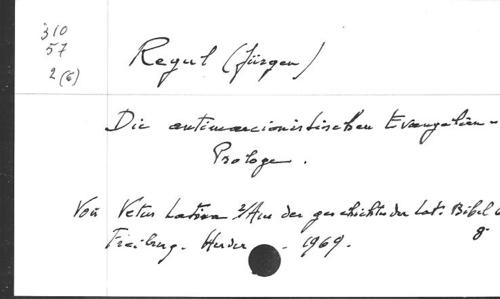 310
57
2 (6)
Regul (Jürgen)
Die antimarcionistischen Evangelien-
Prologe.
Voir Vetus Latina / Aus der geschichte der Lat. Bibel
Freiburg. Herder. 1969. 8°